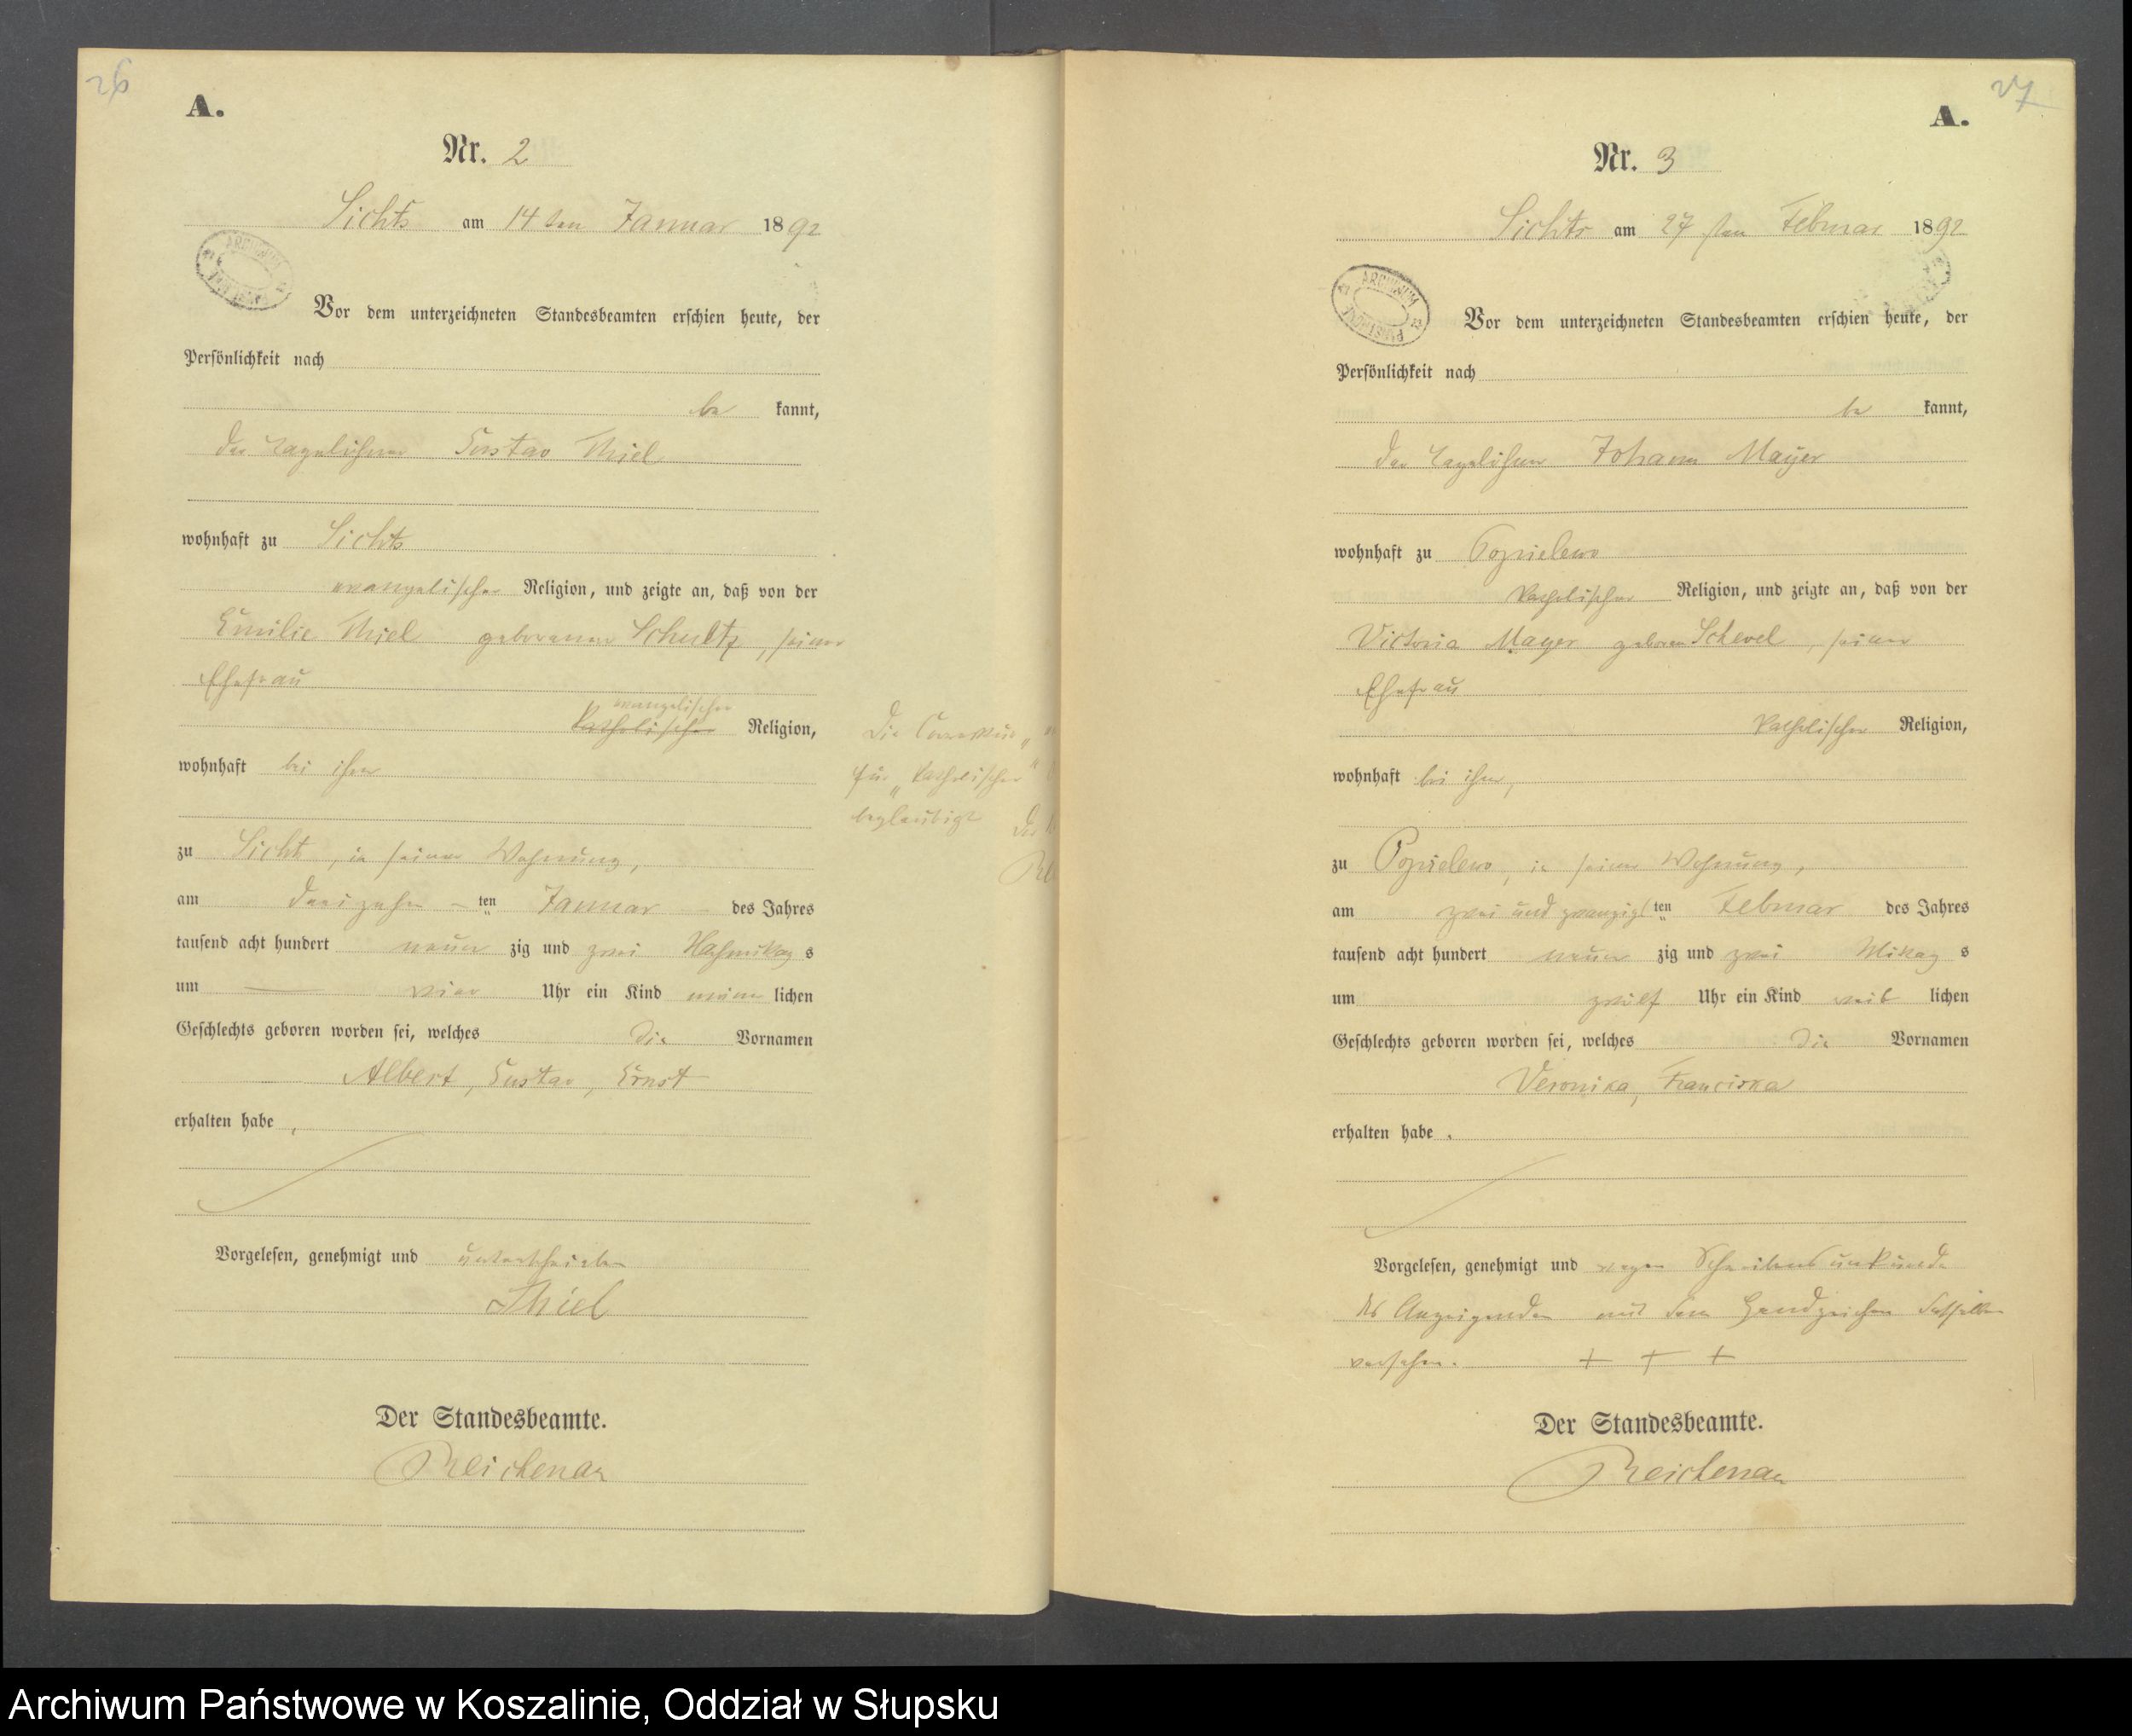 26
A.
Nr. 2
Sichts am 14 ten Januar 1892
ARCHIWUM
Vor dem unterzeichneten Standesbeamten erschien heute, der
Persönlichkeit nach
be kannt,
der Tagelöhner Gustav Thiel
wohnhaft zu Sichts
evangelischer Religion, und zeigte an, daß von der
Emilie Thiel geborenen Schultz, seiner
Ehefrau
evangelischer
katholischer Religion,
wohnhaft bei ihm
zu Sicht, in seiner Wohnung,
am dreizehn ten Januar des Jahres
tausend acht hundert neun zig und zwei Nachmittag s
um vier Uhr ein Kind männ lichen
Geschlechts geboren worden sei, welches die Vornamen
Albert, Gustav, Ernst
erhalten habe,
Vorgelesen, genehmigt und unterschrieben
Thiel
Der Standesbeamte.
Reichenau
Die
für „katholischer“
beglaubigt
27
A.
Nr. 3
Sichts am 27 ten Februar 1892
ARCHIWUM
Vor dem unterzeichneten Standesbeamten erschien heute, der
Persönlichkeit nach
be kannt,
der Tagelöhner Johann Mayer
wohnhaft zu Popielewo
katholischer Religion, und zeigte an, daß von der
Victoria Mayer geboren Schevel, seiner
Ehefrau
katholischer Religion,
wohnhaft bei ihm,
zu Popielewo, in seiner Wohnung,
am zwei und zwanzigs ten Februar des Jahres
tausend acht hundert neun zig und zwei Mittag s
um zwölf Uhr ein Kind weib lichen
Geschlechts geboren worden sei, welches die Vornamen
Veronika, Franciska
erhalten habe.
Vorgelesen, genehmigt und wegen Schreibensunkunde
des Anzeigenden mit dem Handzeichen desselben
versehen. + + +
Der Standesbeamte.
Reichenau
Archiwum Państwowe w Koszalinie, Oddział w Słupsku